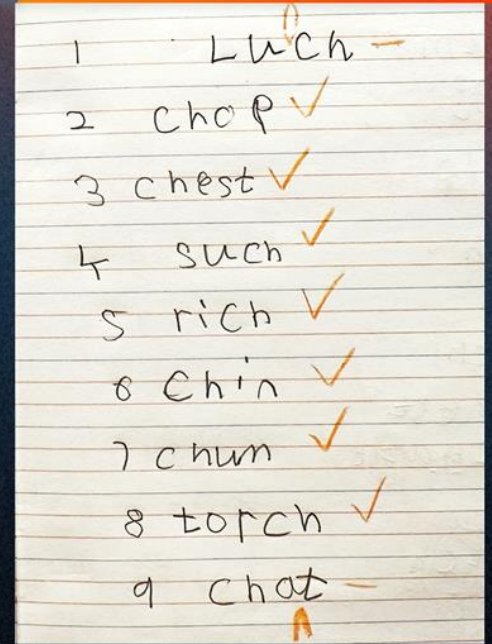 n
1 Luch
2 chop
3 chest
4 such
5 rich
6 chin
7 chum
8 torch
9 chat
n